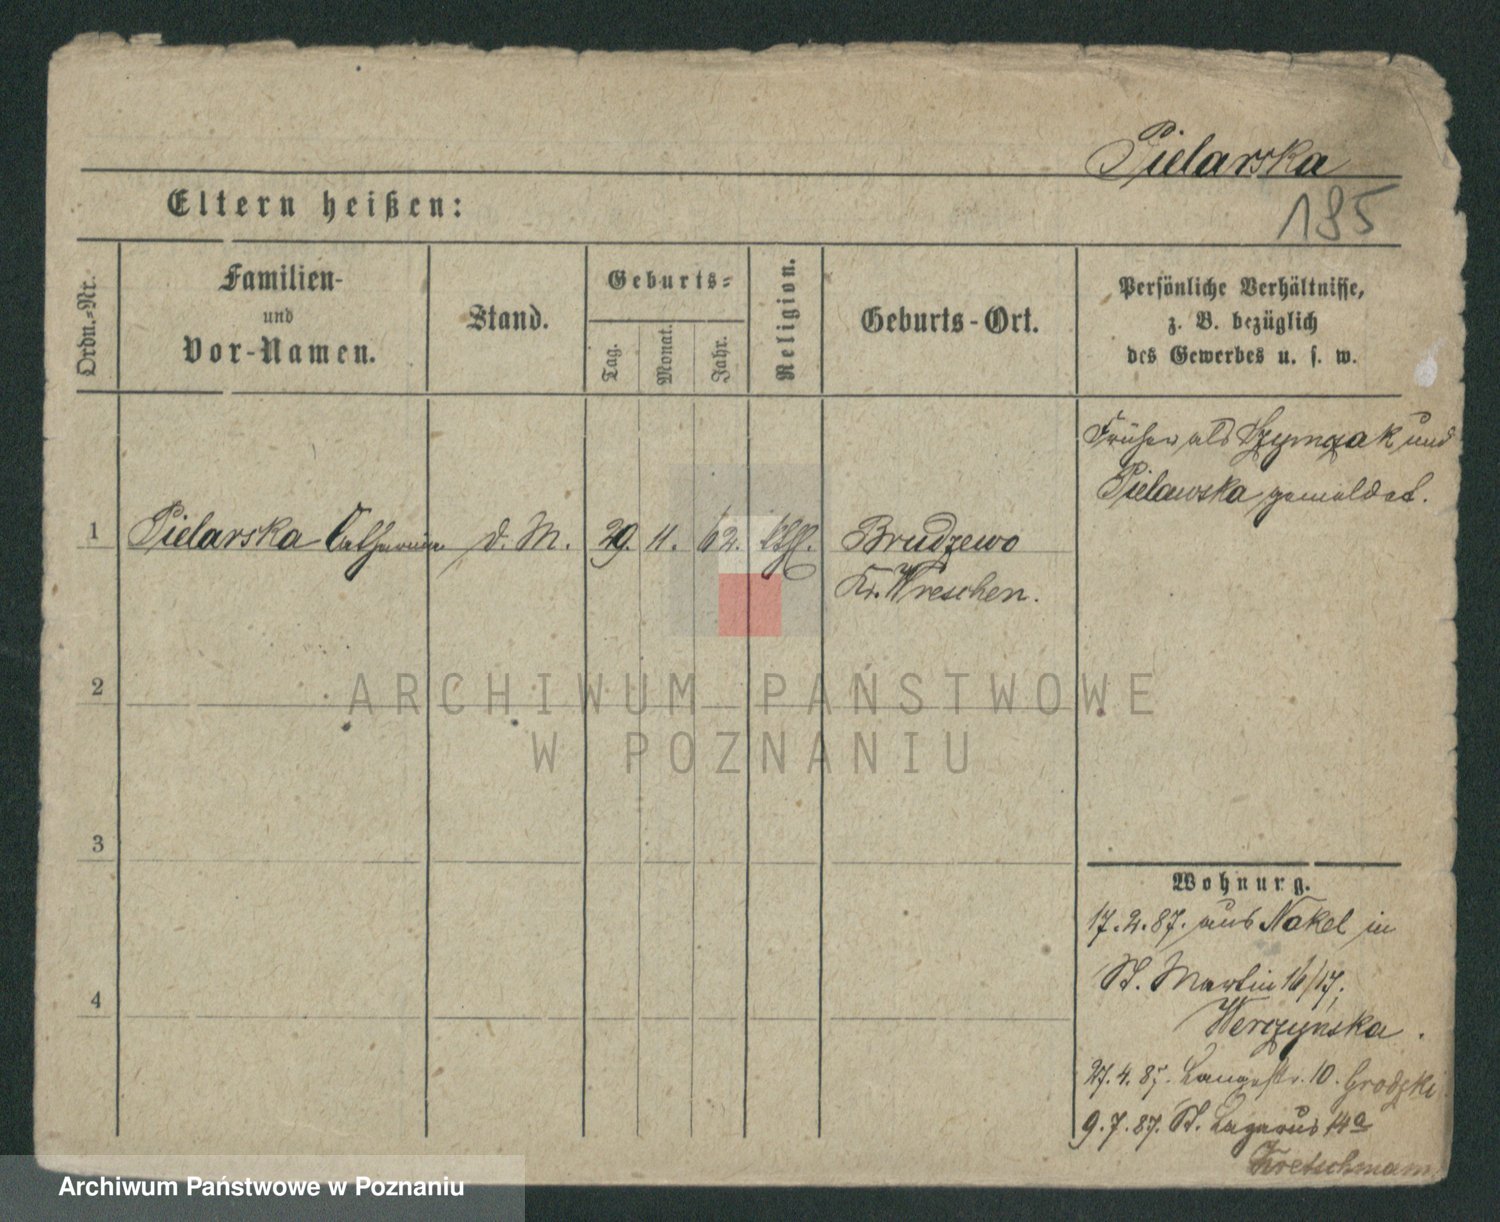 Pielarska
195
Eltern heißen:
Ordn.-Nr.
Familien-
und
Vor-Namen.
Stand.
Geburts-
Tag.
Monat.
Jahr.
Religion.
Geburts-Ort.
Persönliche Verhältnisse,
z. B. bezüglich
des Gewerbes u. s. w.
Früher als Szymczak und
Pielawska gemeldet.
1 Pielarska Catharina d. M. 29. 11. 62. kth. Brudzewo
Kr. Wreschen.
2
3
4
Wohnung.
17. 2. 87. aus Nakel in
St. Martin 16/17,
Werczynska.
27. 4. 87. Langestr. 10. Grodzki
9. 7. 87. St. Lazarus 14a
Kretschmann
ARCHIWUM PAŃSTWOWE
W POZNANIU
Archiwum Państwowe w Poznaniu